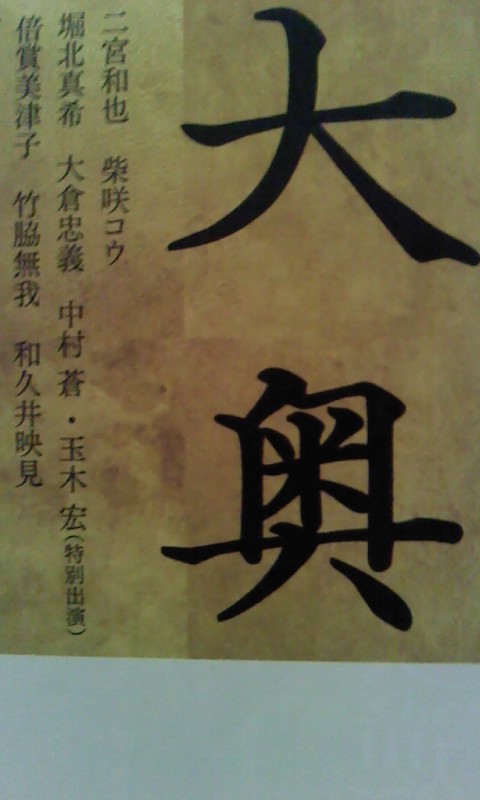 大奥
二宮和也 柴咲コウ
堀北真希 大倉忠義 中村 蒼・玉木 宏(特別出演)
倍賞美津子 竹脇無我 和久井映見